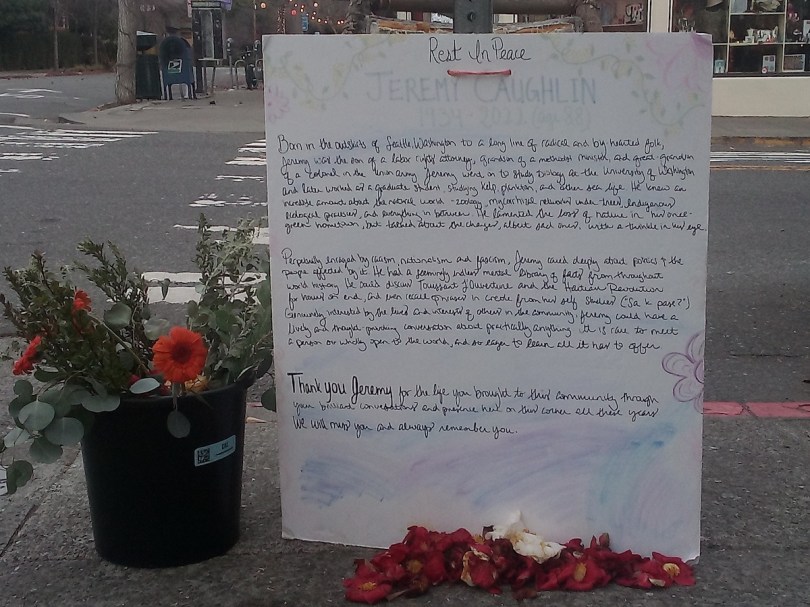 Rest In Peace
JEREMY CAUGHLIN
Born in the outskirts of Seattle, Washington to a long line of radical and big hearted folk,
Jeremy was the son of a labor rights attorney, grandson of a methodist minister, and great-grandson
of a colonel in the union army. Jeremy went on to study biology at the University of Washington
and later worked as a graduate student, studying kelp, plankton, and other sea life. He knew an
incredible amount about the natural world - zoology, mycorrhizal networks under trees, Indigenous
ecological processes, and everything in between. He lamented the loss of nature in his once-
green hometown, but talked about the changes, albeit sad ones, with a twinkle in his eye.
Perpetually enraged by racism, nationalism and fascism, Jeremy cared deeply about politics & the
people affected by it. He had a seemingly endless mental library of facts from throughout
world history. He could discuss Toussaint L'Ouverture and the Haitian Revolution
for hours on end, and even recall phrases in creole from his self studies ("Sa k pase?")
Genuinely interested by the lives and interests of others in the community, Jeremy could have a
lively and thought-provoking conversation about practically anything. It is rare to meet
a person so wholly open to the world, and so eager to learn all it has to offer.
Thank you Jeremy for the life you brought to this community through
your brilliant conversations and presence here on this corner all these years.
We will miss you and always remember you.